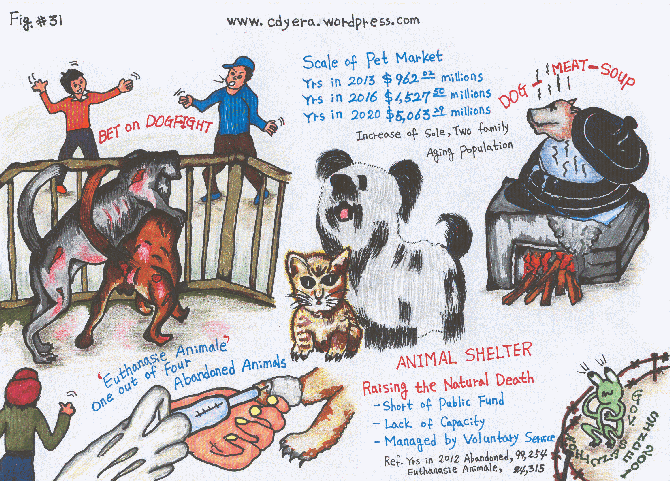 Fig. #31
www.cdyera.wordpress.com
Scale of Pet Market
Yrs in 2013 $962.02 millions
Yrs in 2016 $1,527.50 millions
Yrs in 2020 $5,063.29 millions
Increase of Sole, Two family
Aging Population
DOG MEAT-SOUP
BET on DOGFIGHT
"Euthanasie Animale"
One out of Four
Abandoned Animals
ANIMAL SHELTER
Raising the Natural Death
- Short of Public Fund
- Lack of Capacity
- Managed by Voluntary Service
Ref. Yrs in 2012 Abandoned, 99,254
Euthanasie Animale, 24,315